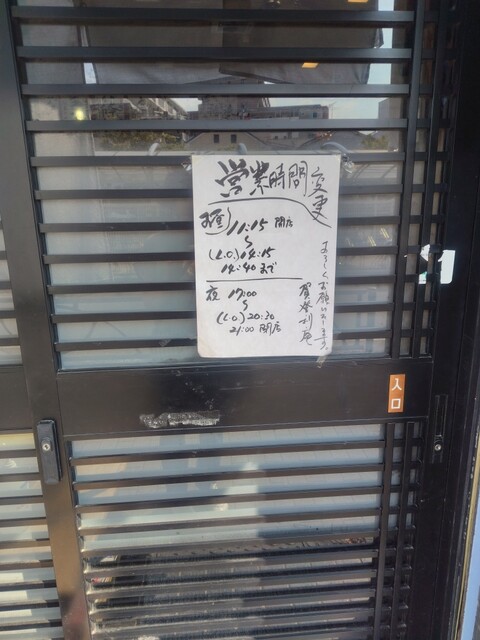 営業時間変更
お昼 11:15 開店
〜
(L.O.) 14:15
14:40まで
夜 17:00
〜
(L.O.) 20:30
21:00 閉店
よろしくお願いします。
入口